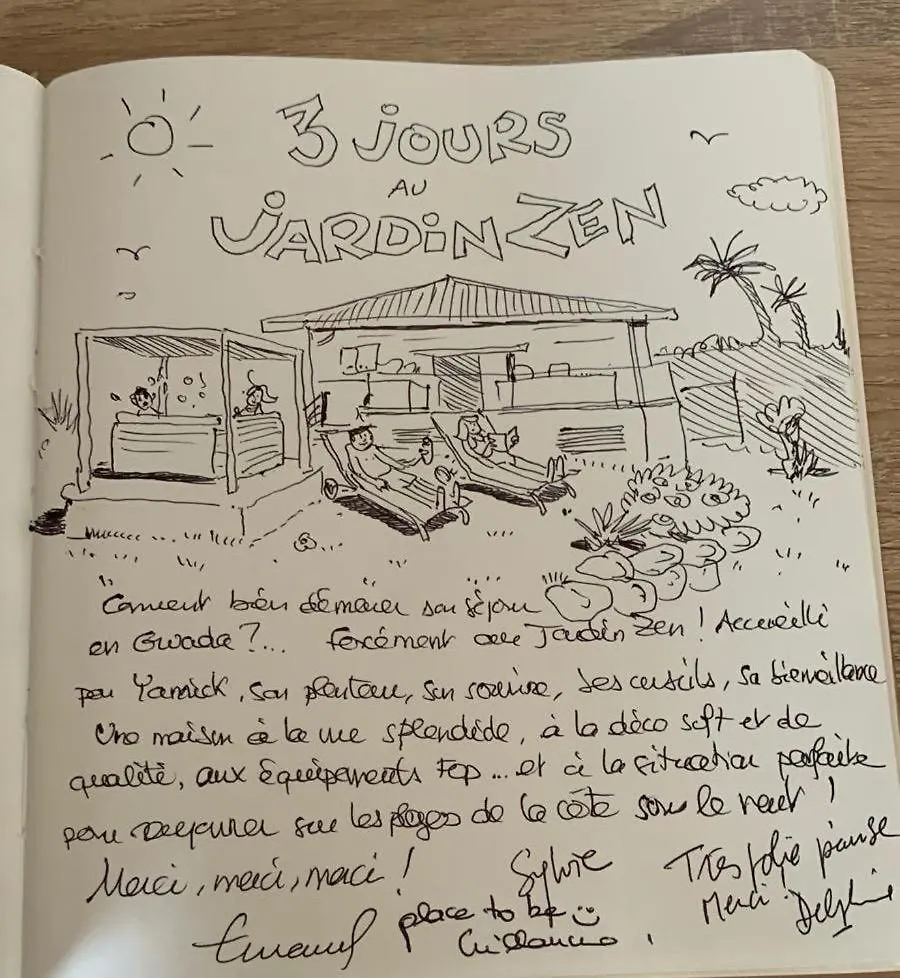 3 JOURS
AU
JARDIN ZEN
Comment bien démarrer son séjour
en Gwada ?... forcément au Jardin Zen ! Accueilli
par Yannick, son planteur, son sourire, ses conseils, sa bienveillance
Une maison à la vue splendide, à la déco soft et de
qualité, aux équipements top ... et à la situation parfaite
pour sur les plages de la côte sous le vent !
Merci, merci, merci !
Sylvie
Très jolie pause
Merci
Delphine
Emanuel
place to be
Guillaume